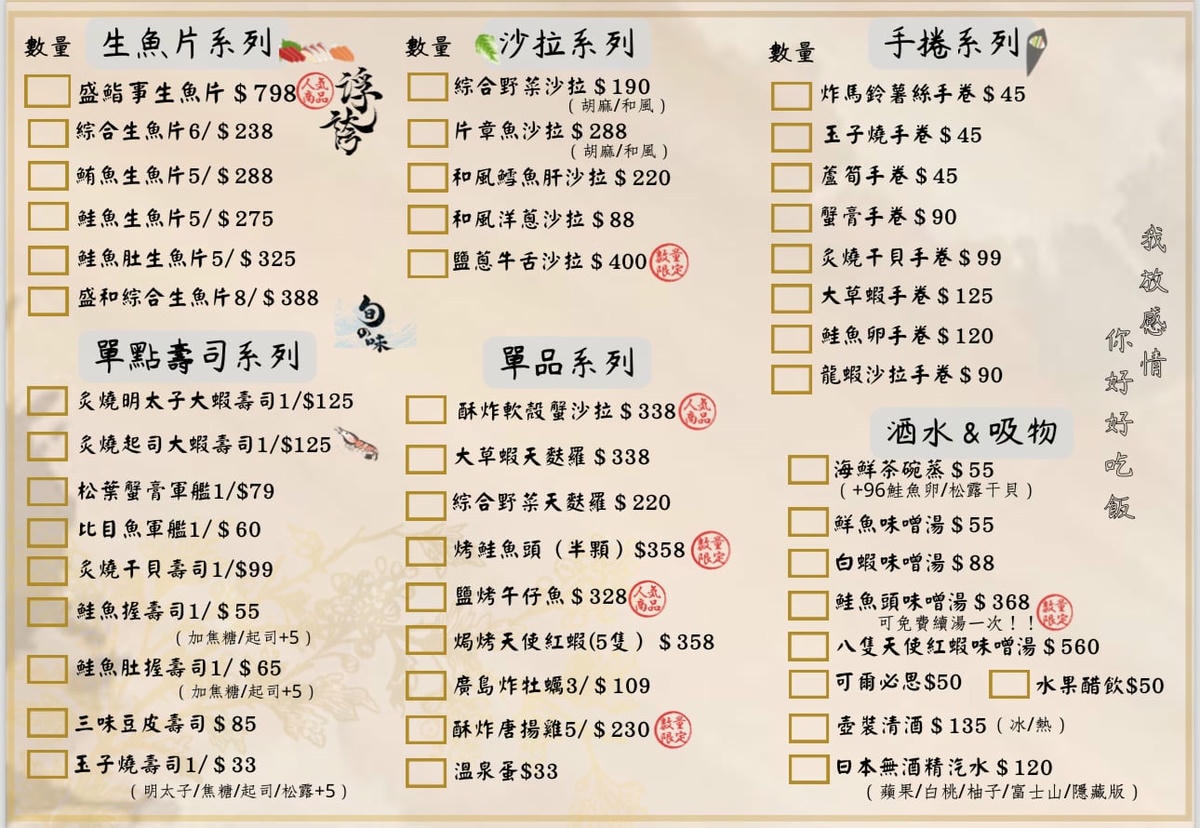 數量
生魚片系列
盛鮨事生魚片 $ 798
人気商品
浮誇
綜合生魚片6/ $ 238
鮪魚生魚片5/ $ 288
鮭魚生魚片5/ $ 275
鮭魚肚生魚片5/ $ 325
盛和綜合生魚片8/ $ 388
旬の味
單點壽司系列
炙燒明太子大蝦壽司1/$125
炙燒起司大蝦壽司1/$125
松葉蟹膏軍艦1/$79
比目魚軍艦1/ $ 60
炙燒干貝壽司1/$99
鮭魚握壽司1/ $ 55
（加焦糖/起司+5）
鮭魚肚握壽司1/ $ 65
（加焦糖/起司+5）
三味豆皮壽司 $ 85
玉子燒壽司1/ $ 33
（明太子/焦糖/起司/松露+5）
數量
沙拉系列
綜合野菜沙拉 $ 190
（胡麻/和風）
片章魚沙拉 $ 288
（胡麻/和風）
和風鱈魚肝沙拉 $ 220
和風洋蔥沙拉 $ 88
鹽蔥牛舌沙拉 $ 400
數量限定
單品系列
酥炸軟殼蟹沙拉 $ 338
人気商品
大草蝦天麩羅 $ 338
綜合野菜天麩羅 $ 220
烤鮭魚頭（半顆）$358
數量限定
鹽烤午仔魚 $ 328
人気商品
焗烤天使紅蝦(5隻） $ 358
廣島炸牡蠣3/ $ 109
酥炸唐揚雞5/ $ 230
數量限定
溫泉蛋$33
數量
手捲系列
炸馬鈴薯絲手卷 $ 45
玉子燒手卷 $ 45
蘆筍手卷 $ 45
蟹膏手卷 $ 90
炙燒干貝手卷 $ 99
大草蝦手卷 $ 125
鮭魚卵手卷 $ 120
龍蝦沙拉手卷 $ 90
我放感情
你好好吃飯
酒水＆吸物
海鮮茶碗蒸 $ 55
（+96鮭魚卵/松露干貝）
鮮魚味噌湯 $ 55
白蝦味噌湯 $ 88
鮭魚頭味噌湯 $ 368
可免費續湯一次！！
數量限定
八隻天使紅蝦味噌湯 $ 560
可爾必思$50
水果醋飲$50
壺裝清酒 $ 135（冰/熱）
日本無酒精汽水 $ 120
（蘋果/白桃/柚子/富士山/隱藏版）